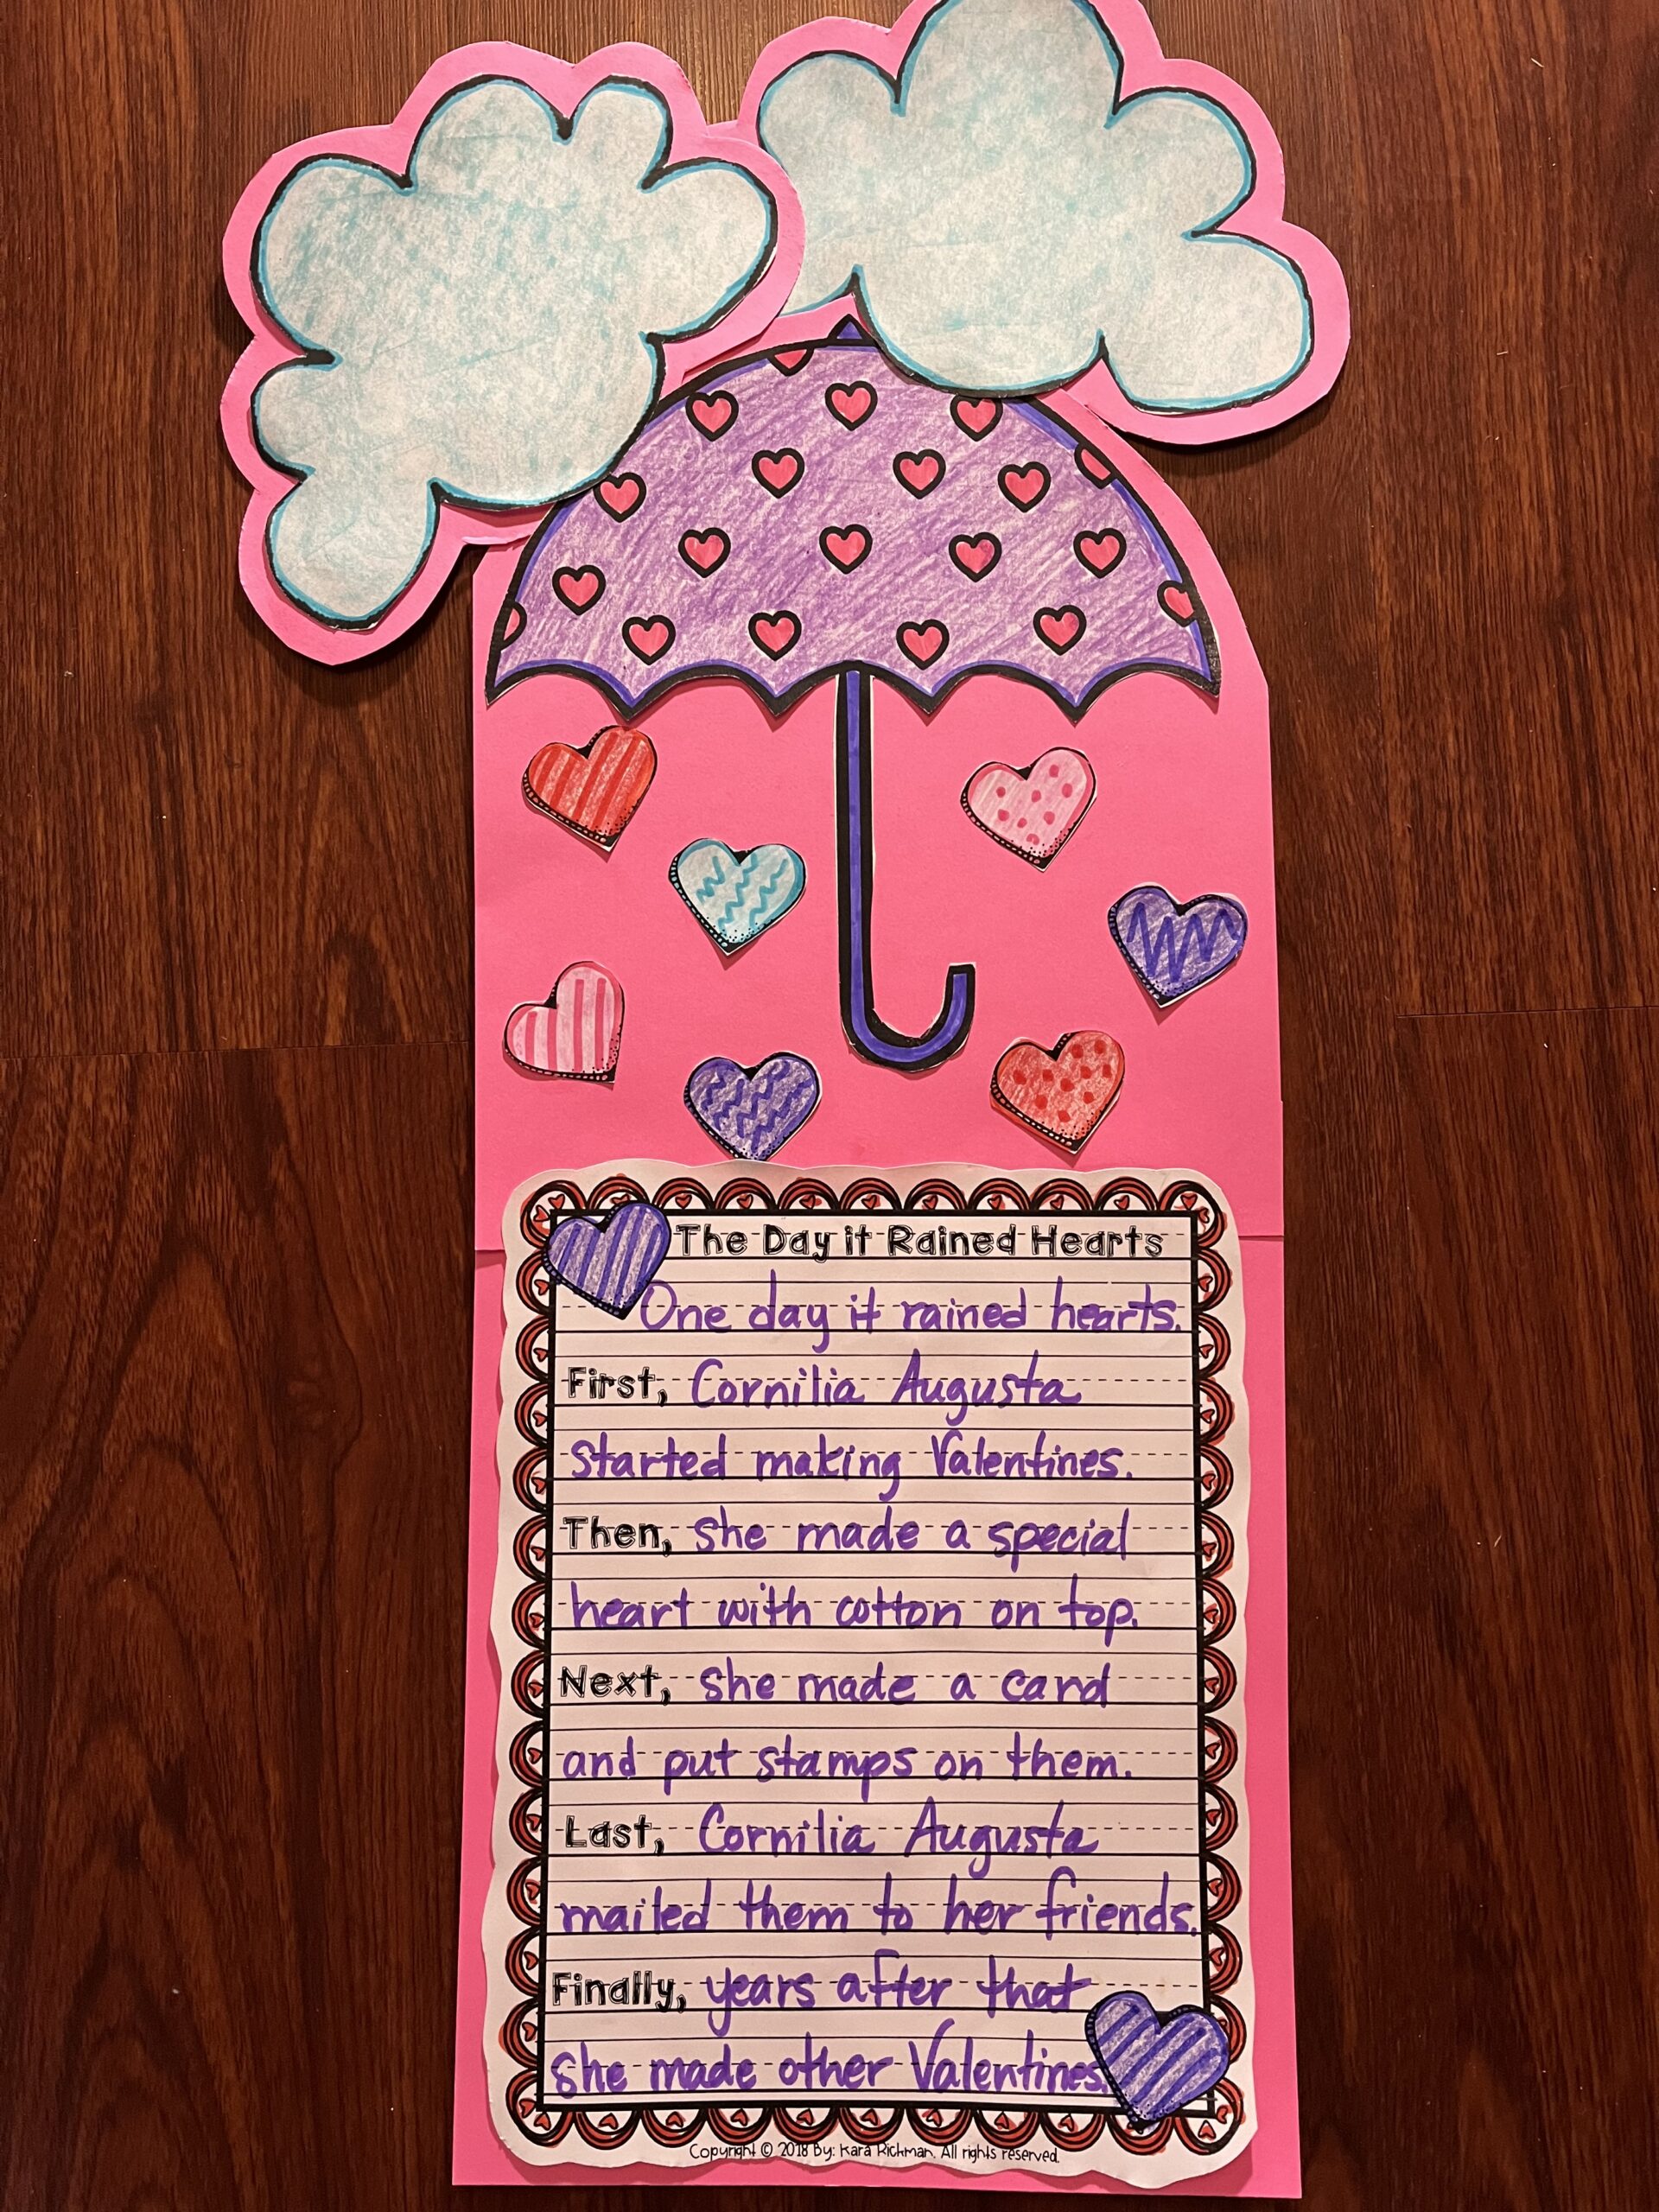 The Day it Rained Hearts
One day it rained hearts.
First, Cornilia Augusta
started making Valentines.
Then, she made a special
heart with cotton on top.
Next, she made a card
and put stamps on them.
Last, Cornilia Augusta
mailed them to her friends.
Finally, years after that
she made other Valentines.
Copyright © 2018 By: Kara Rickman. All rights reserved.